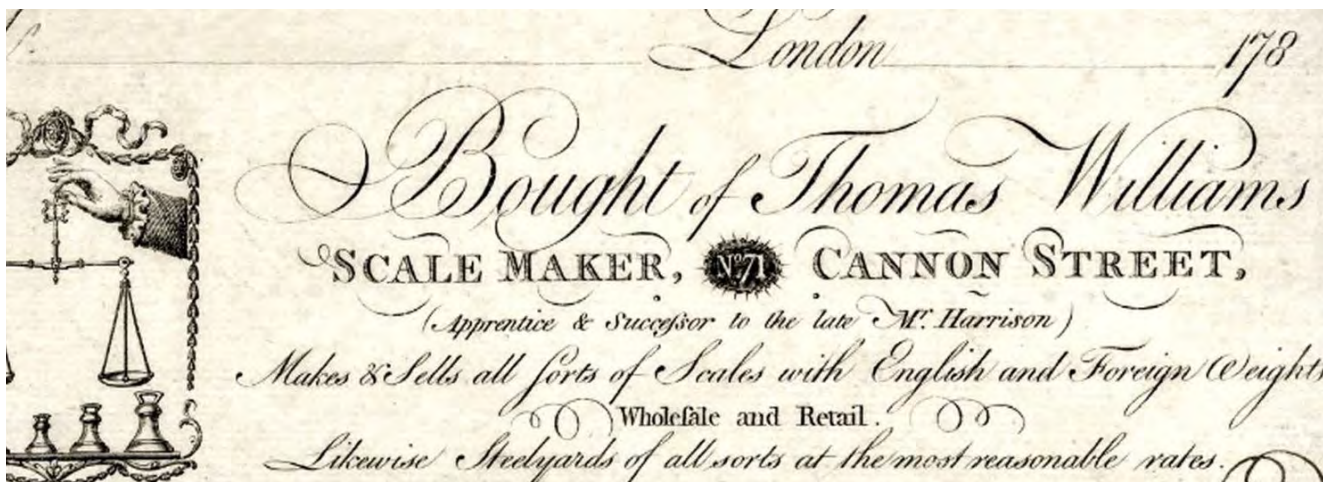 London 178
Bought of Thomas Williams
SCALE MAKER, No. 71 CANNON STREET,
(Apprentice & Succeſsor to the late Mr. Harrison)
Makes & Sells all ſorts of Scales with English and Foreign Weights
Wholeſale and Retail.
Likewise Steelyards of all sorts at the most reasonable rates.